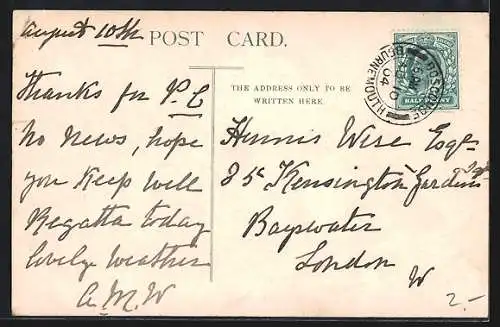 August 10th
POST CARD.
Thanks for P.C
No News, hope
you Keep well
Regatta today
lovely weather
A.M.W
THE ADDRESS ONLY TO BE
WRITTEN HERE.
Wise Esqr
35 Kensington Gardens Sq
Bayswater
London
W
BOSCOMBE
BOURNEMOUTH
AU 10
04
HALFPENNY
2.-